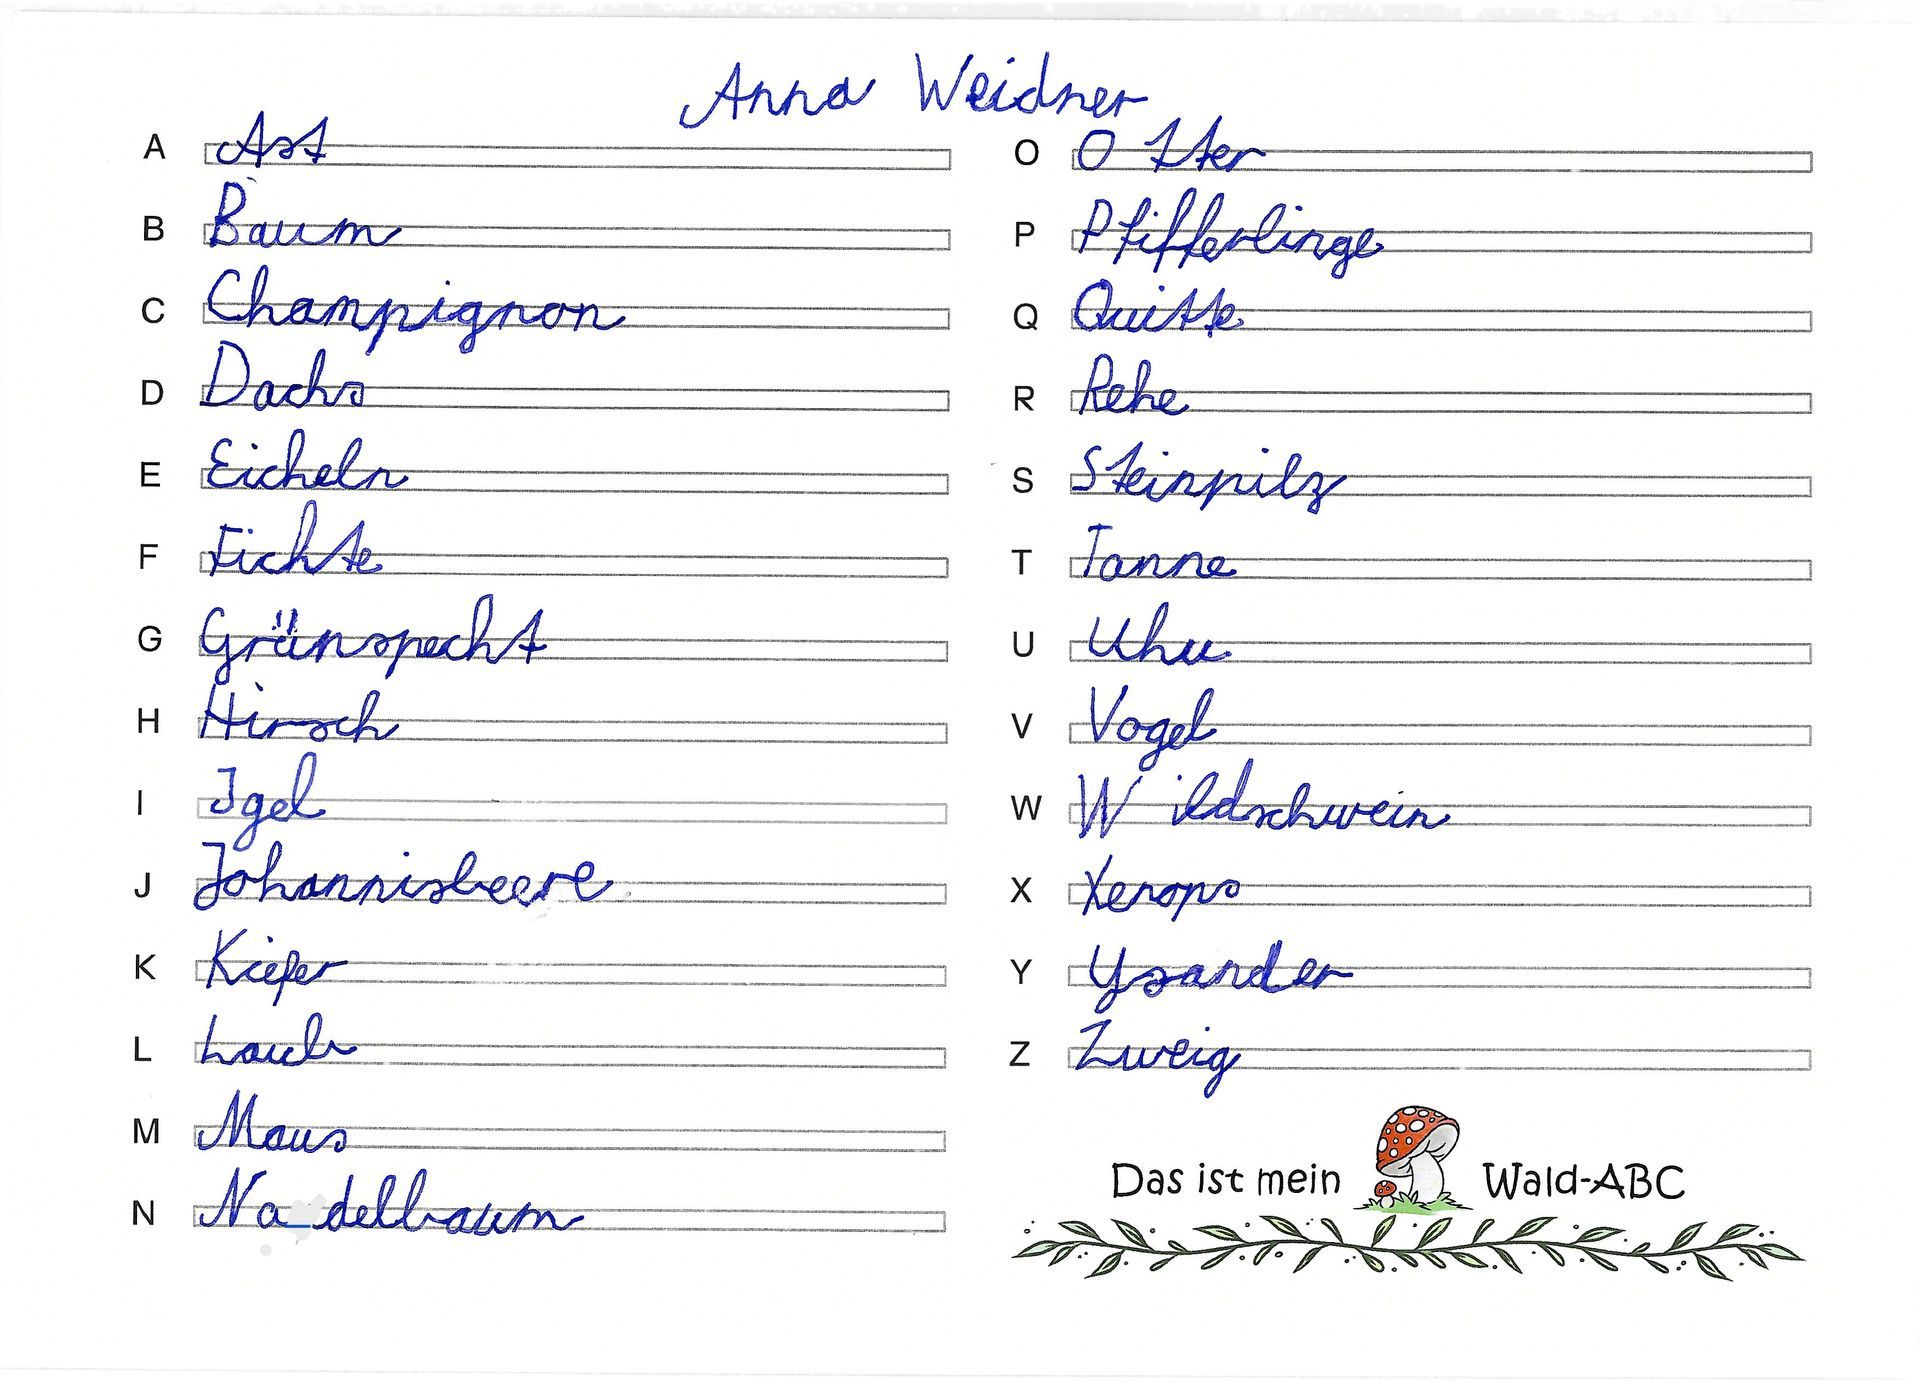 Anna Weidner
A Ast
B Baum
C Champignon
D Dachs
E Eicheln
F Fichte
G Grünspecht
H Hirsch
I Igel
J Johannisbeere
K Kiefer
L Laub
M Maus
N Nadelbaum
O Otter
P Pfifferlinge
Q Quitte
R Rehe
S Steinpilz
T Tanne
U Uhu
V Vogel
W Wildschwein
X Xenops
Y Ysander
Z Zweig
Das ist mein Wald-ABC